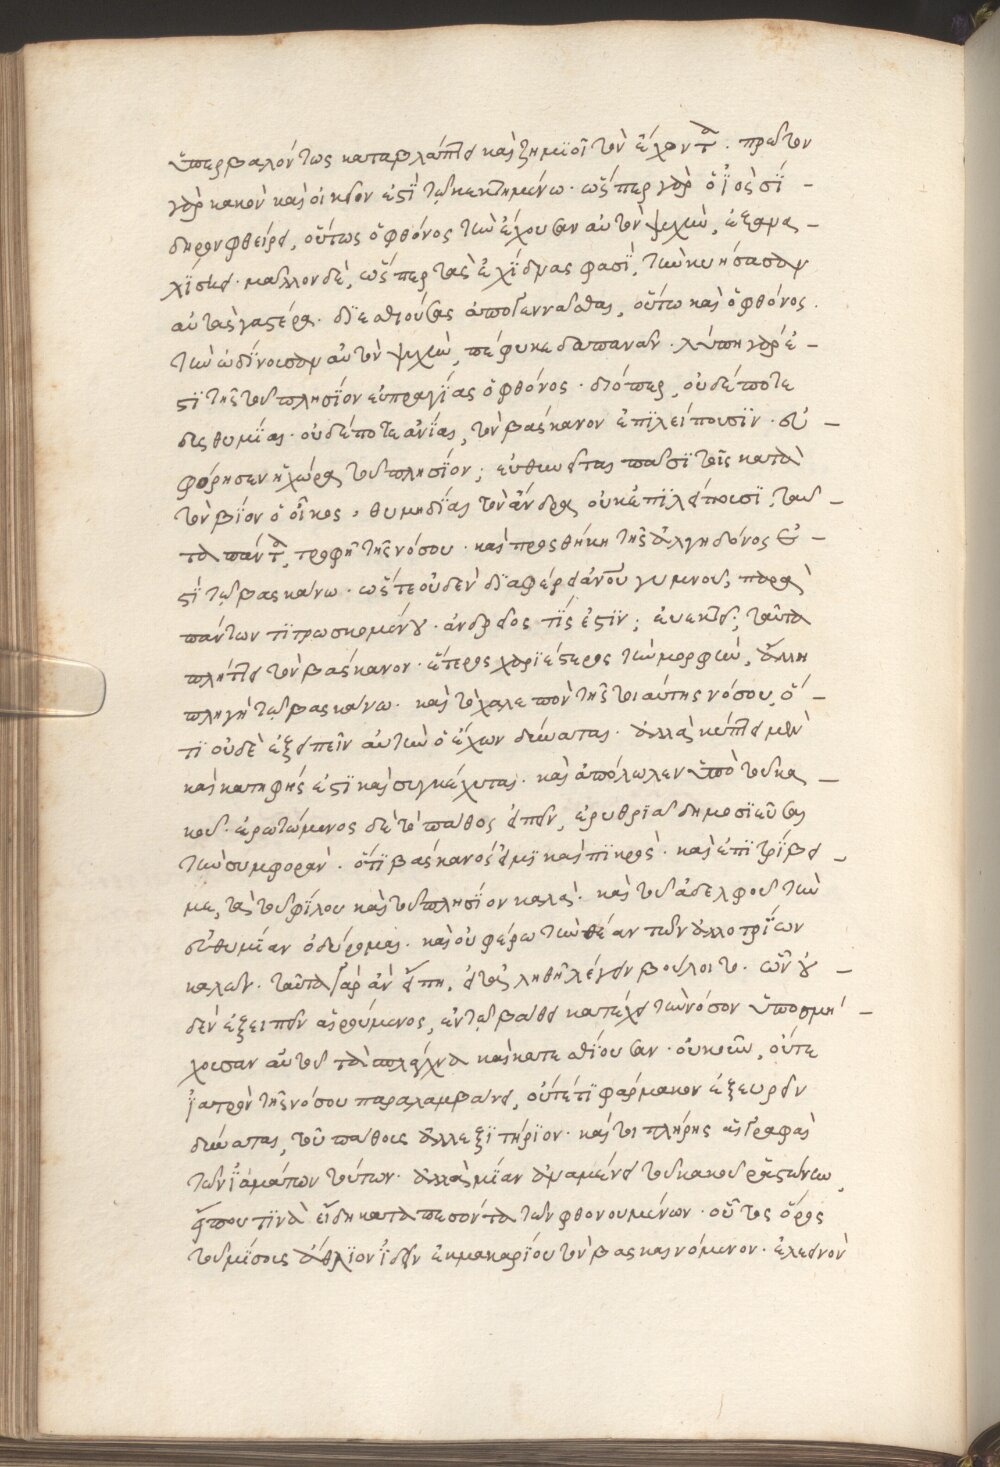 ὑπερβαλόντως καταβλάπτει καὶ ζημϊοῖ τὸν ἔχοντα. πρῶτον
γὰρ κακὸν καὶ οἰκεῖον ἐστῒ τῶ κεκτημένω. ὥσπερ γὰρ ὁ ϊὸς σϊ-
δηρον φθείρει, οὕτως ὁ φθόνος τὴν ἔχουσαν αὐτὸν ψυχὴν, ἐξανα-
λΐσκει. μᾶλλον δὲ, ὥσπερ τὰς ἐχΐδνας φασῒ, τὴν κυήσασαν
αὐτὰς γαστέρα. δϊεσθιούσας ἀπογεννᾶσθαι, οὕτω καὶ ὁ φθόνος.
τὴν ὠδΐνουσαν αὐτὸν ψυχὴν, πέφυκε δαπανᾶν. λύπη γάρ ἐ-
στϊ τῆς τοῦ πλησΐον εὐπραγΐας ὁ φθόνος. διόπερ, οὐδέποτε
δυσθυμΐαι. οὐδέποτε ἀνΐαι, τὸν βάσκανον ἐπϊλείπουσϊν. εὐ-
φόρησεν ἡ χώρα τοῦ πλησΐον; εὐθηνεῖται πᾶσϊ τοῖς κατὰ
τὸν βΐον ὁ οἶκος, θυμηδΐαι τὸν ἄνδρα οὐκ ἐπϊλείπουσϊ, ταῦ-
τα πάντα, τροφὴ τῆς νόσου. καὶ προσθήκη τῆς ἀλγηδόνος ἐ-
στϊ τῶ βασκάνω. ὥστε οὐδὲν δϊαφέρει ἀνθρώπου γυμνοῦ, παρὰ
πάντων τϊτρωσκομένου. ἀνδρεῖός τΐς ἐστϊν; εὐεκτεῖ; ταῦτα
πλήττει τὸν βάσκανον. ἕτερος χαρϊέστερος τὴν μορφὴν, ἄλλη
πληγὴ τῶ βασκάνω. καὶ τὸ χαλεπὸν τῆς τοιαύτης νόσου, ὅ-
τϊ οὐδὲ ἐξειπεῖν αὐτὴν ὁ ἔχων δύναται. ἀλλὰ κύπτει μὲν
καὶ κατηφής ἐστϊ καὶ συγκέχυται. καὶ ἀπόλωλεν ὑπὸ τοῦ κα-
κοῦ. ἐρωτώμενος δὲ τὸ πάθος εἰπεῖν, ἐρυθρϊᾶ δημοσϊεῦσαι
τὴν συμφορὰν. ὅτϊ βάσκανός εἰμϊ καὶ πϊκρὸς. καὶ ἐπϊτρΐβει-
με, τὰ τοῦ φΐλου καὶ τοῦ πλησΐον καλὰ. καὶ τοῦ ἀδελφοῦ τὴν
εὐθυμΐαν ὀδύρομαι. καὶ οὐ φέρω τὴν θέαν τῶν ἀλλοτρΐων
καλῶν. ταῦτα γὰρ ἂν εἴπη, εἰ τἀληθῆ λέγειν βούλοιτο. ὧν οὐ-
δὲν ἐξειπεῖν αἱρούμενος, ἐν τῶ βάθει κατέχει τὴν νόσον ὑποσμή-
χουσαν αὐτοῦ τὰ σπλάγχνα καὶ κατεσθΐουσαν. οὔκουν, οὔτε
ϊατρὸν τῆς νόσου παραλαμβάνει, οὔτέ τϊ φάρμακον ἐξευρεῖν
δύναται, τοῦ πάθους ἀλεξϊτήρϊον. καίτοι πλήρης αἱ γραφαὶ
τῶν ϊαμάτων τούτων. ἀλλὰ μΐαν ἀναμένει τοῦ κακοῦ ῥαστώνην,
εἴπου τϊνὰ εἴδη καταπεσόντα τῶν φθονουμένων. οὗτος ὅρος
τοῦ μΐσους ἄθλϊον ϊδεῖν ἐκ μακαρίου τὸν βασκαινόμενον. ἐλεεινὸν